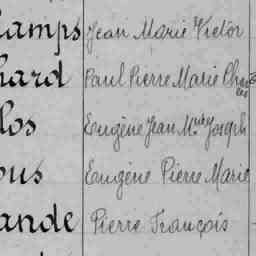 camps Jean Marie Victor
hard Paul Pierre Marie Charles
los Eugène Jean Mie Joseph
ous Eugène Pierre Marie
ande Pierre François